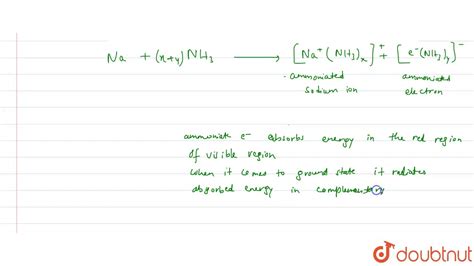 Na + (x+y) NH3 ⟶ [Na+ (NH3)x]+ + [e- (NH3)y]-
ammoniated ammoniated
Sodium ion electron
ammoniate e- absorbs energy in the red region
of visible region
when it comes to ground state it radiates
absorbed energy in complementary
doubtnut